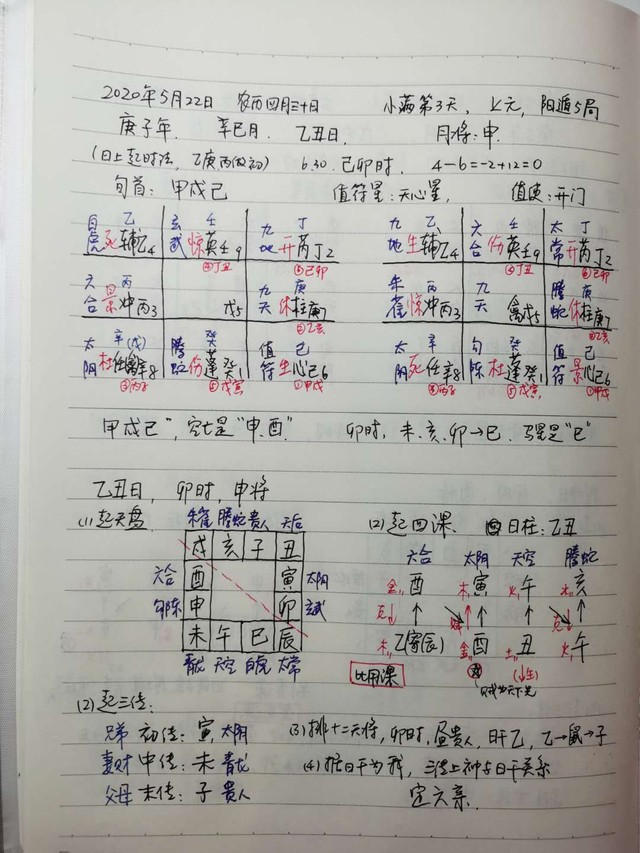 2020年5月22日 农历四月三十日 小满第3天, 上元, 阳遁5局
庚子年, 辛巳月, 乙丑日, 月将:申.
(日上起时法, 乙庚丙做初) 6.30. 己卯时, 4-6=-2+12=0
旬首: 甲戌己 值符星:天心星, 值使:开门
白 乙 玄 壬 九 丁 九 乙 六 壬 太 丁
虎死辅乙4 武惊英壬9 地开芮丁2 地生辅乙4 合伤英壬9 常开芮丁2
④丁丑 ⑥己卯 ④丁丑 ⑥己卯
六 丙 九 庚 朱 丙 九 腾 庚
合景冲丙3 戊5 天休柱庚7 雀惊冲丙3 天 禽戊5 蛇休柱庚7
②乙亥 ②乙亥
太 辛(戊) 腾 癸 值 己 太 辛 勾 癸 值 己
阴杜任禽辛8 蛇伤蓬癸1 符生心己6 阴死任辛8 陈杜蓬癸1 符景心己6
③丙子 ⑤戊寅 ①甲戌 ③丙子 ⑤戊寅 ①甲戌
甲戌己", 空亡是"申.酉" 卯时, 未.亥.卯→巳. 马星是"巳"
乙丑日, 卯时, 申将
(1)起天盘 朱雀 腾蛇 贵人 天后 (2)起四课. 日柱:乙丑
戌 亥 子 丑 六合 太阴 天空 腾蛇
六合 酉 寅 太阴 金酉 木寅 火午 水亥
勾陈 申 卯 玄武 克
未 午 巳 辰 木乙(寄辰) 金酉 土丑 火午
青龙 天空 白虎 太常 比用课 (↓生)
(2)起三传:
兄弟 初传: 寅, 太阴 (3)排十二天将, 卯时, 昼贵人, 日干乙, 乙→鼠→子
妻财 中传: 未 青龙 (4)据日干为我, 三传上神与日干关系
父母 末传: 子 贵人 定六亲.